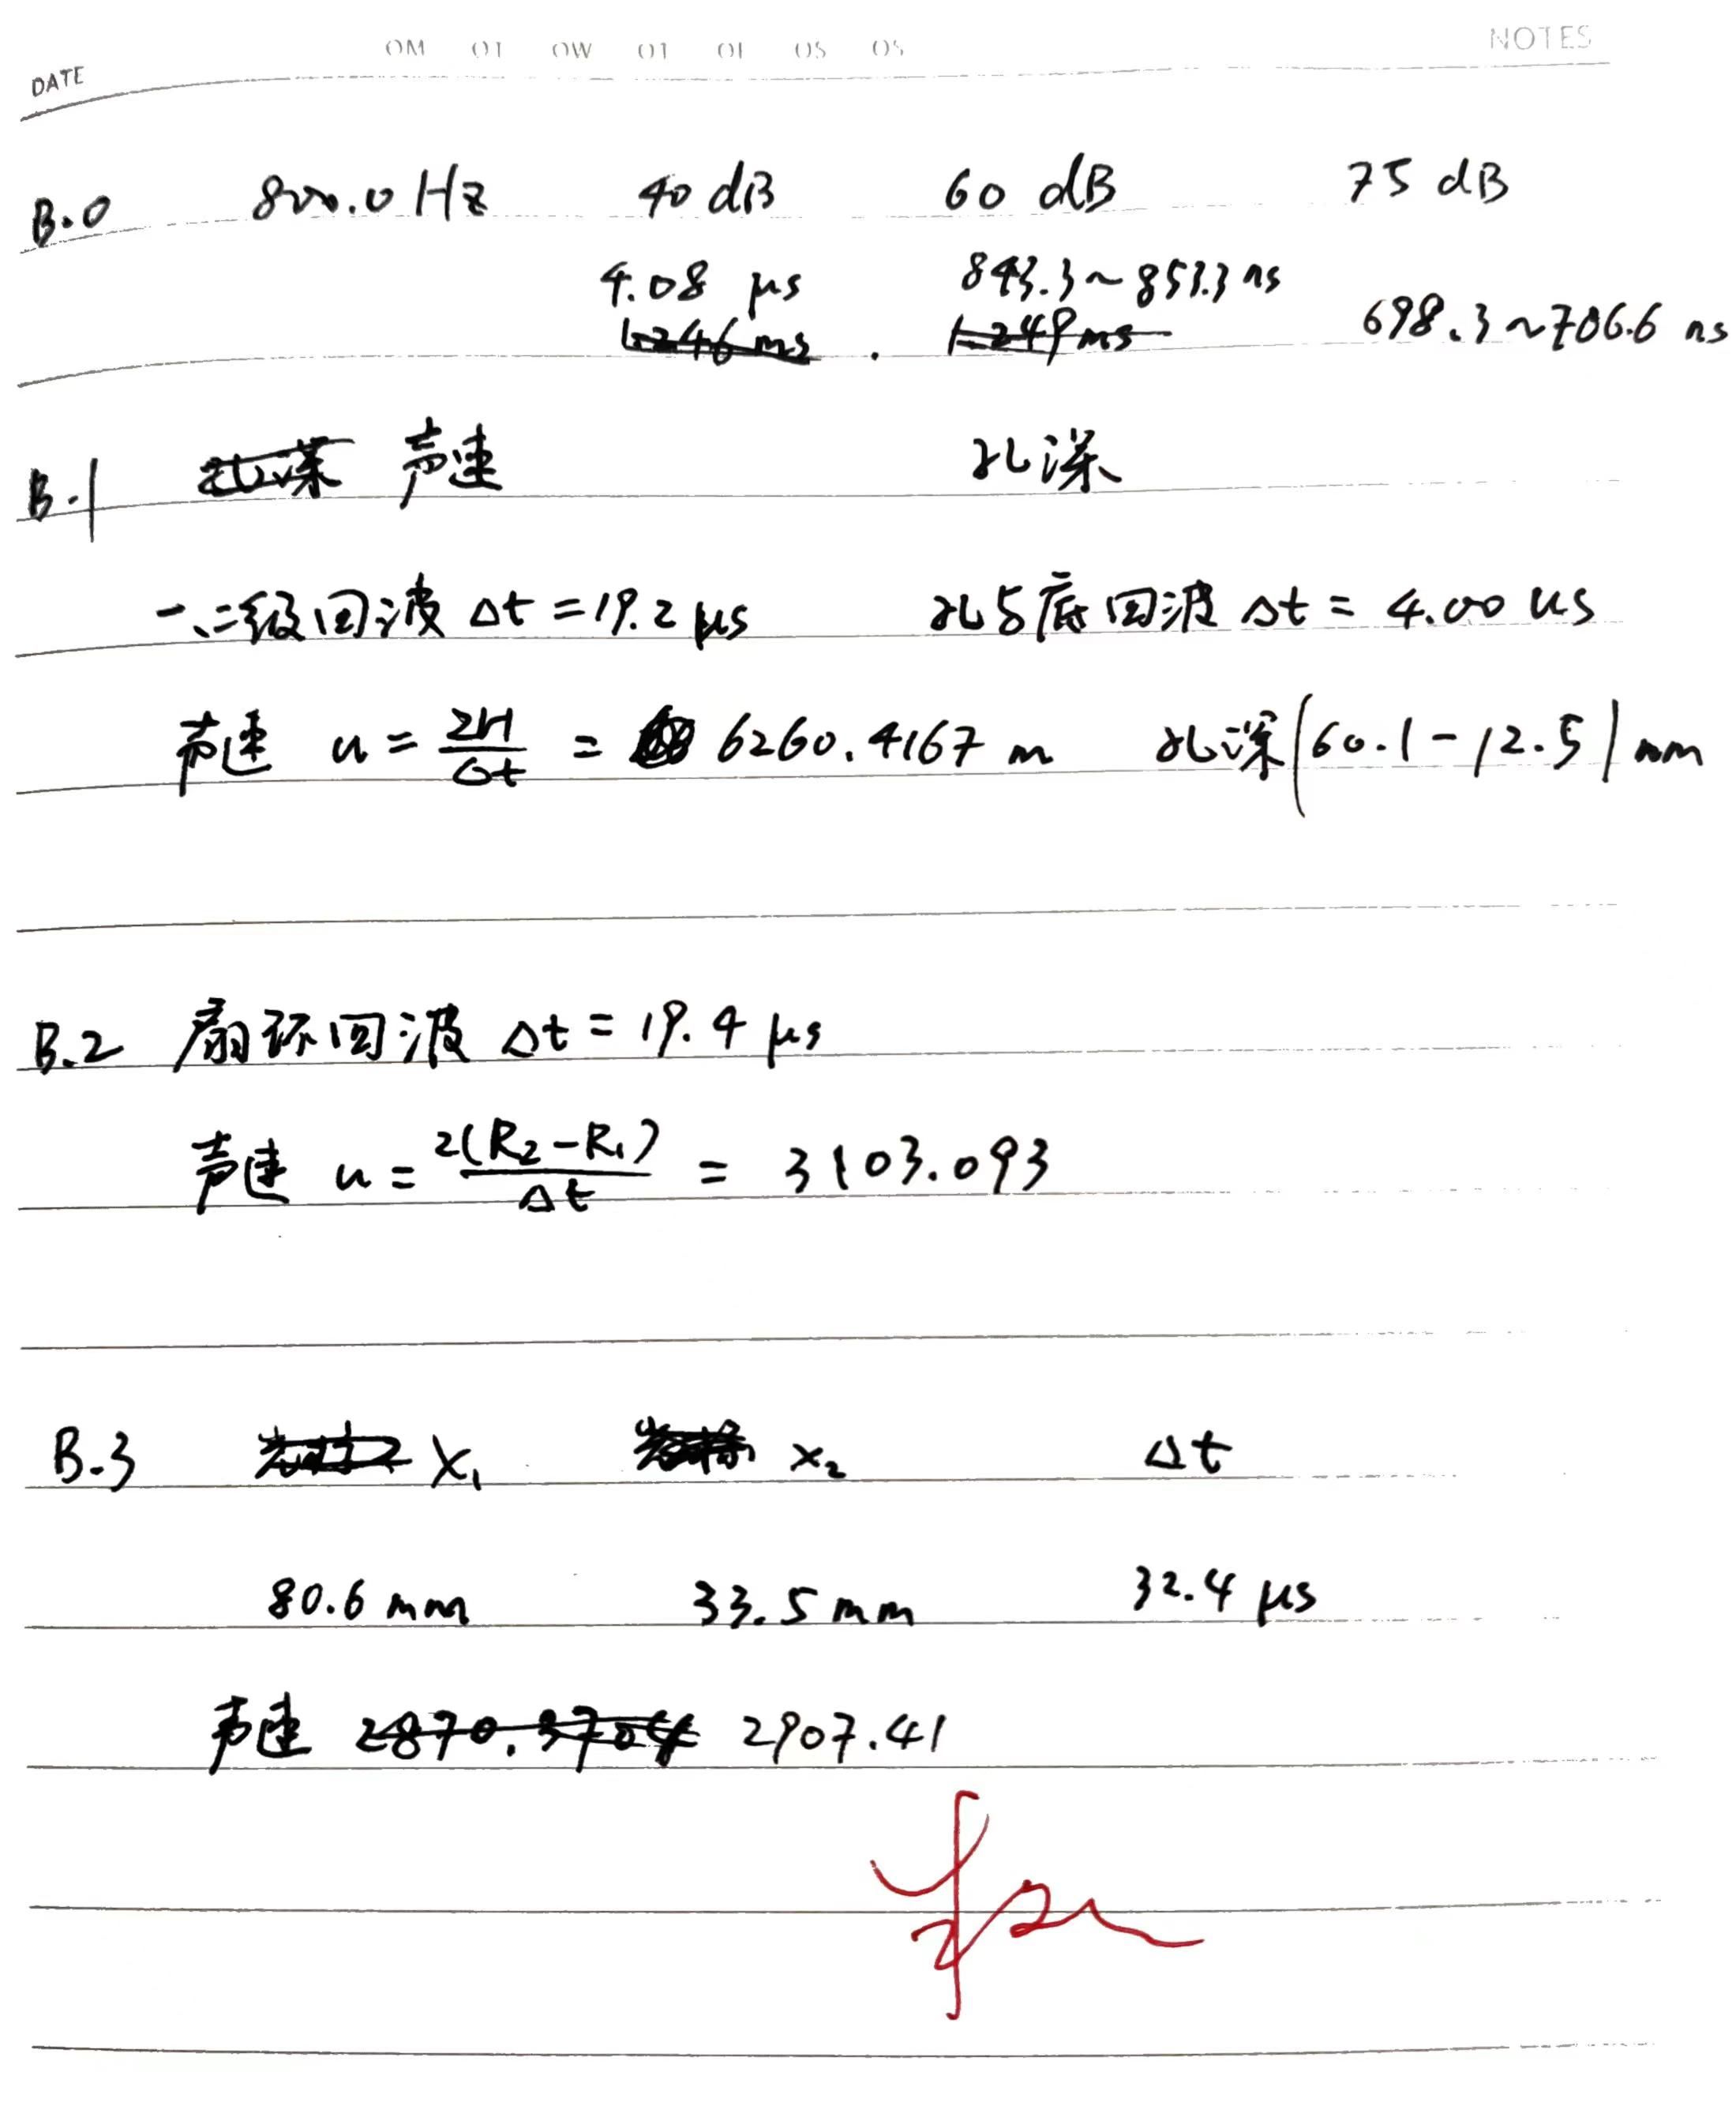 DATE
NOTES
B.0 800.0 Hz 40 dB 60 dB 75 dB
4.08 μs 843.3~853.3 ns
1.246 ms 1.249 ms 698.3~706.6 ns
B.1 孔深 声速 孔深
一、二级回波 Δt=19.2 μs 孔与底回波 Δt = 4.00 us
声速 u = 2H/Δt = 6260.4167 m 孔深(60.1-12.5) mm
B.2 扇环回波 Δt = 19.4 μs
声速 u = 2(R2-R1)/Δt = 3103.093
B.3 X1 x2 Δt
80.6 mm 33.5 mm 32.4 μs
声速 2870.3704 2907.41